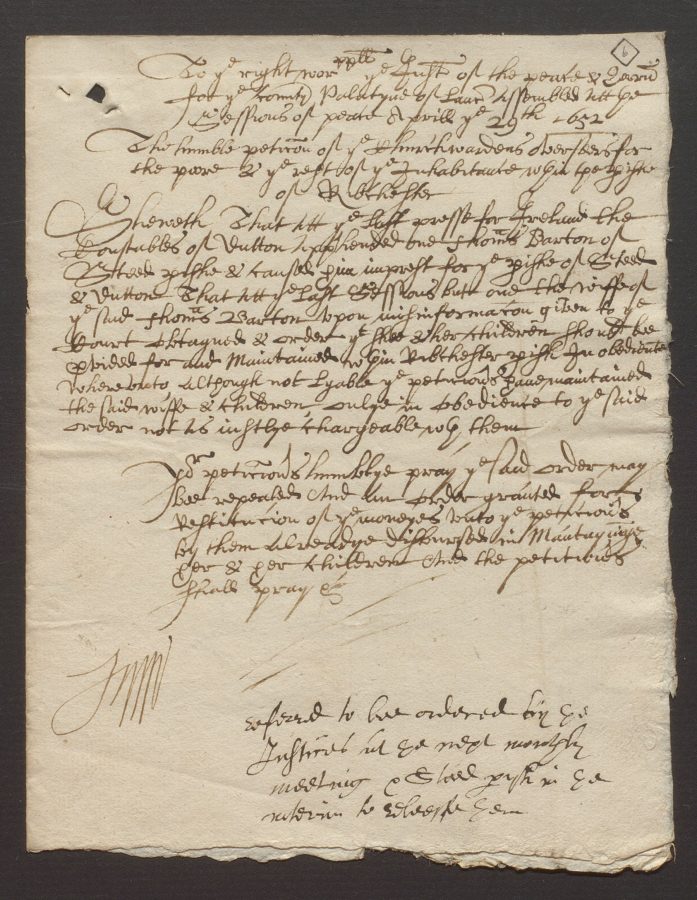 6
To ye right worppll ye Justs of the peace & Quorū
for ye County Palatyne of Lanc Assembled Att the
Sessions of peace Aprill ye 29th 1652
The humble peticon of ye Churchwardens Overseers for
the poore & ye rest of ye Inhabitants wthin the pishe
of Ribchester
Sheweth That Att ye last presse for Ireland the
Constables of Dutton Apphended one Thomas Barton of
Steed pishe & caused him imprest for ye pishe of Steed
& Dutton That Att ye last Sessions but one the wiffe of
ye said Thoms Barton upon misinformacon given to ye
Court obtayned & order yt shee & her children should be
pvided for and Maintained wthin Ribchester pish In obedience
whereunto Although not Lyable ye peticionrs have maintained
the said wiffe & children onlye in obedience to ye said
order not As iustlye chargeable wth them
Yor peticionrs humblye pray ye said order may
bee repealed And An order granted for
Restitucion of ye moneyes unto ye peticionrs
by them Alreadye disbursed in Mantayninge
her & her children And the petitionrs
shall pray &c
referred to bee ordered by the
Justices at the next monthly
meeting & Steed pish in the
interim to releeffe them